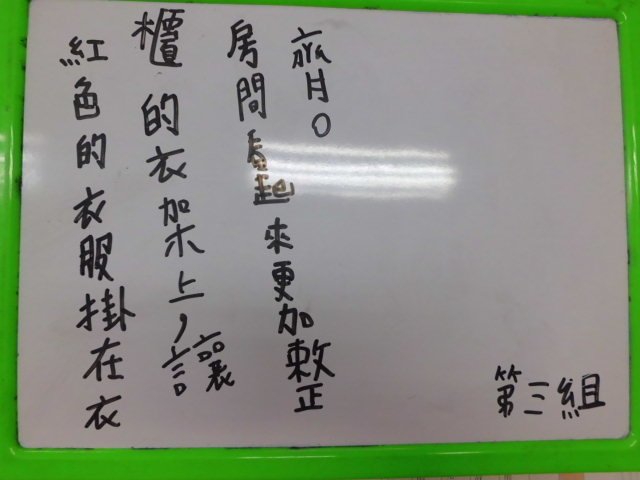 紅色的衣服掛在衣
櫃的衣架上，讓
房間看起來更加整
齊。
第三組